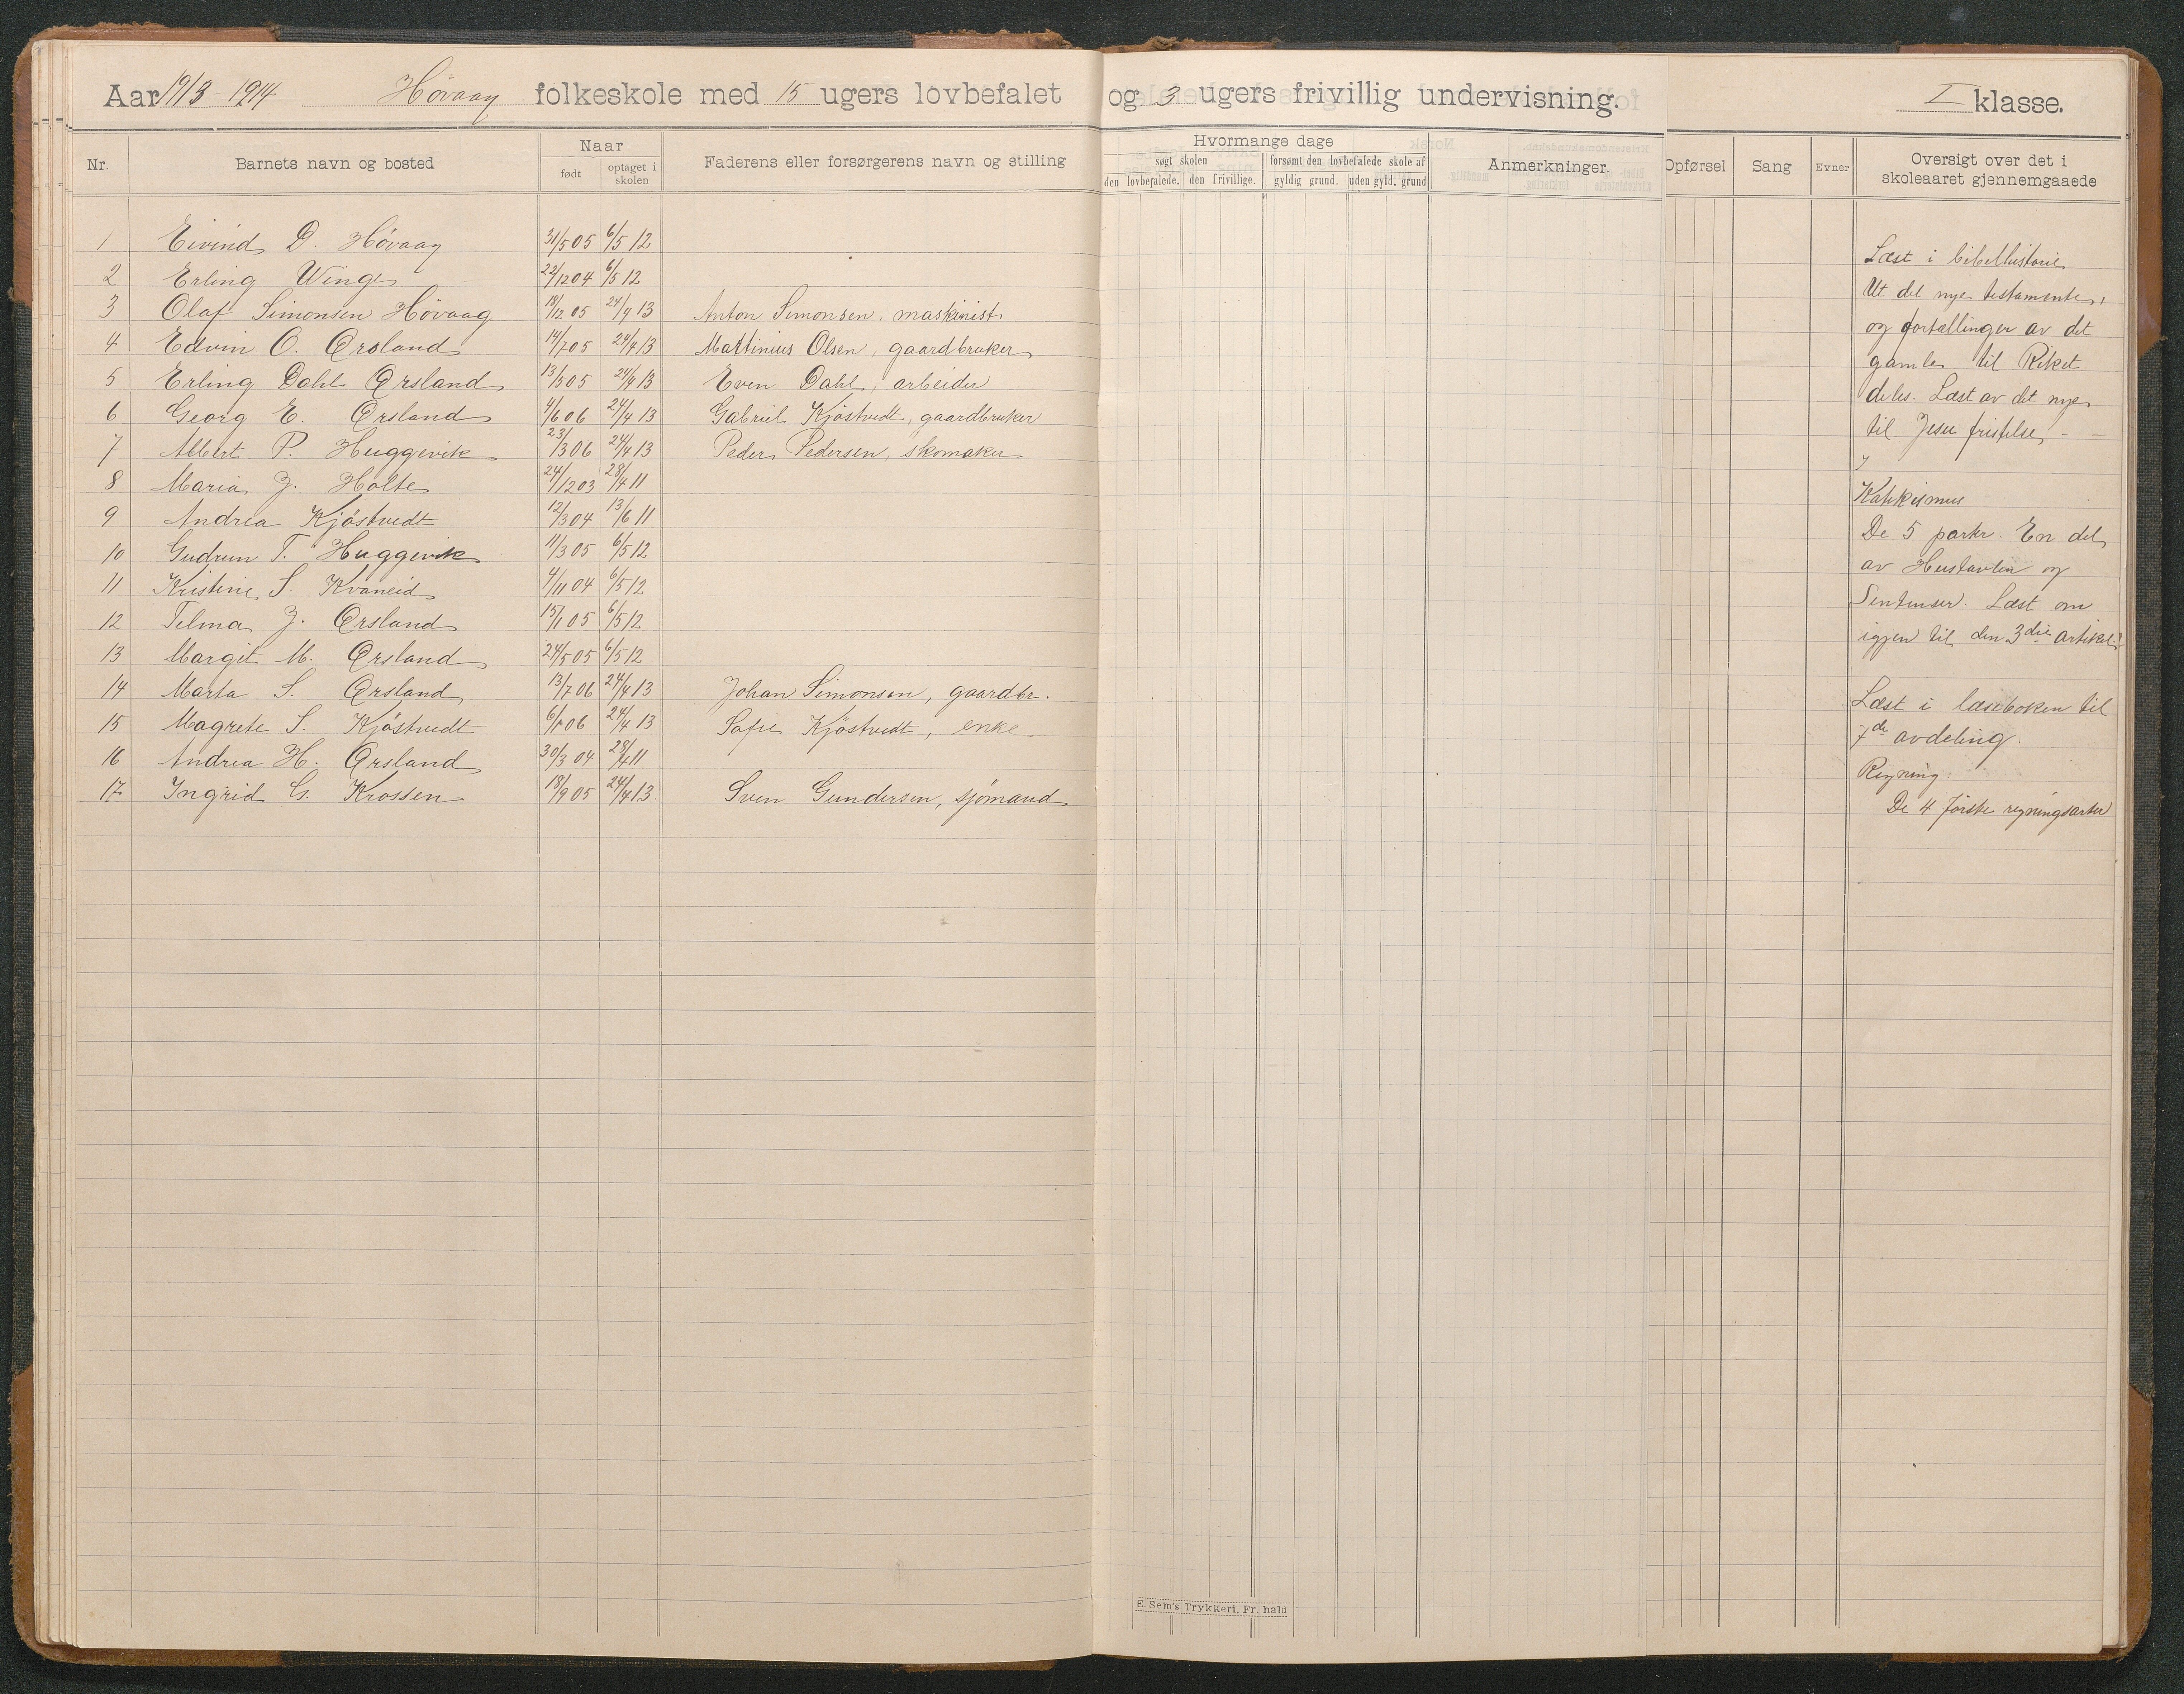 Aar 1913-1914 Høvaag folkeskole med 15 ugers lovbefalet og 3 ugers frivillig undervisning. I klasse.
Nr. Barnets navn og bosted Naar født optaget i skolen Faderens eller forsørgerens navn og stilling
Hvormange dage
søgt skolen forsømt den lovbefalede skole af
den lovbefalede. den frivillige. gyldig grund. uden gyld. grund
Anmerkninger. Opførsel Sang Evner Oversigt over det i skoleaaret gjennemgaaede
1 Eivind D. Høvaag 31/5 05 6/5 12
2 Erling Winge 22/12 04 6/5 12
3 Olaf Simonsen Høvaag 18/12 05 24/4 13 Anton Simonsen, maskinist
4 Edvin O. Ørsland 14/7 05 24/4 13 Mattinius Olsen, gaardbruker
5 Erling Dahl Ørsland 13/5 05 24/4 13 Even Dahl, arbeider
6 Georg E. Ørsland 4/6 06 24/4 13 Gabriel Kjöstvedt, gaardbruker
7 Albert P. Huggevik 23/3 06 24/4 13 Peder Pedersen, skomaker
8 Maria J. Holte 24/12 03 28/4 11
9 Andrea Kjöstvedt 12/3 04 13/6 11
10 Gudrun T. Huggevik 11/3 05 6/5 12
11 Kristine S. Kvaneid 4/11 04 6/5 12
12 Telma J. Ørsland 15/1 05 6/5 12
13 Margit M. Ørsland 24/5 05 6/5 12
14 Marta S. Ørsland 13/7 06 24/4 13 Johan Simonsen, gaardbr.
15 Magrete S. Kjöstvedt 6/1 06 24/4 13 Sofie Kjöstvedt, enke
16 Andrea H. Ørsland 30/3 04 28/4 11
17 Ingrid G. Krossen 18/9 05 24/4 13. Sven Gundersen, sjömand
Læst i bibelhistorie
Ut det nye testamente,
og fortællinger av det
gamle til Riket
deles. Læst av det nye
til Jesu fristelse
Katekismus
De 5 parter. En del
av Hustavlen og
Sentenser. Læst om
igjen til den 3die artikel.
Læst i læseboken til
7de avdeling.
Regning:
De 4 förste regningsarter
E. Sem's Trykkeri, Fr. hald